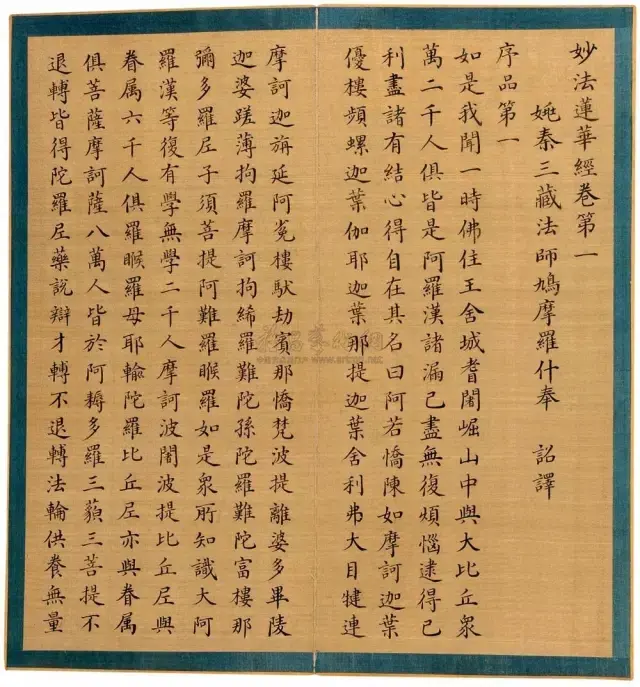 妙法蓮華經卷第一
姚秦三藏法師鳩摩羅什奉 詔譯
序品第一
如是我聞一時佛住王舍城耆闍崛山中與大比丘眾
萬二千人俱皆是阿羅漢諸漏已盡無復煩惱逮得己
利盡諸有結心得自在其名曰阿若憍陳如摩訶迦葉
優樓頻螺迦葉伽耶迦葉那提迦葉舍利弗大目犍連
摩訶迦旃延阿㝹樓馱劫賓那憍梵波提離婆多畢陵
迦婆蹉薄拘羅摩訶拘絺羅難陀孫陀羅難陀富樓那
彌多羅尼子須菩提阿難羅睺羅如是眾所知識大阿
羅漢等復有學無學二千人摩訶波闍波提比丘尼與
眷属六千人俱羅睺羅母耶輸陀羅比丘尼亦與眷属
俱菩薩摩訶薩八萬人皆於阿耨多羅三藐三菩提不
退轉皆得陀羅尼藥說辯才轉不退轉法輪供養無量